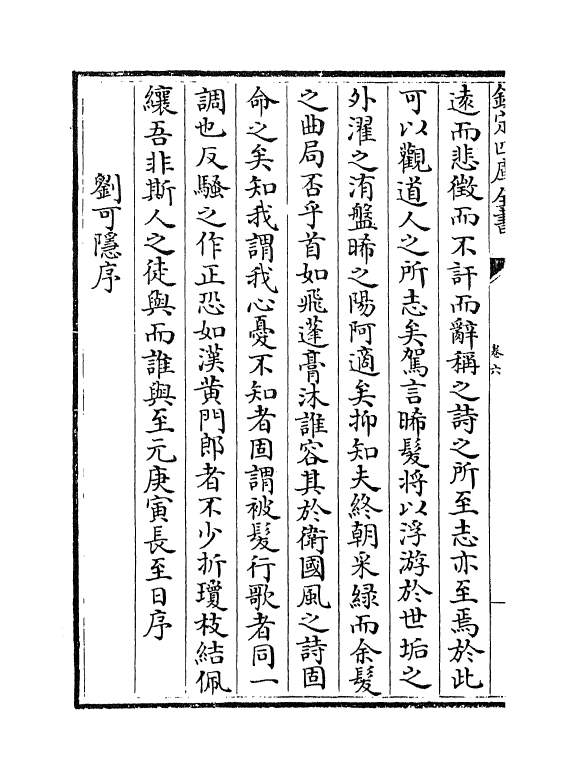 欽定四庫全書
卷六
逺而悲徴而不訐而辭稱之詩之所至志亦至焉於此
可以觀道人之所志矣駕言晞髮將以浮游於世垢之
外濯之洧盤晞之陽阿適矣抑知夫終朝采緑而余髮
之曲局否乎首如飛蓬膏沐誰容其於衛國風之詩固
命之矣知我謂我心憂不知者固謂被髮行歌者同一
調也反騷之作正恐如漢黄門郎者不少折瓊枝結佩
纕吾非斯人之徒與而誰與至元庚寅長至日序
劉可隱序